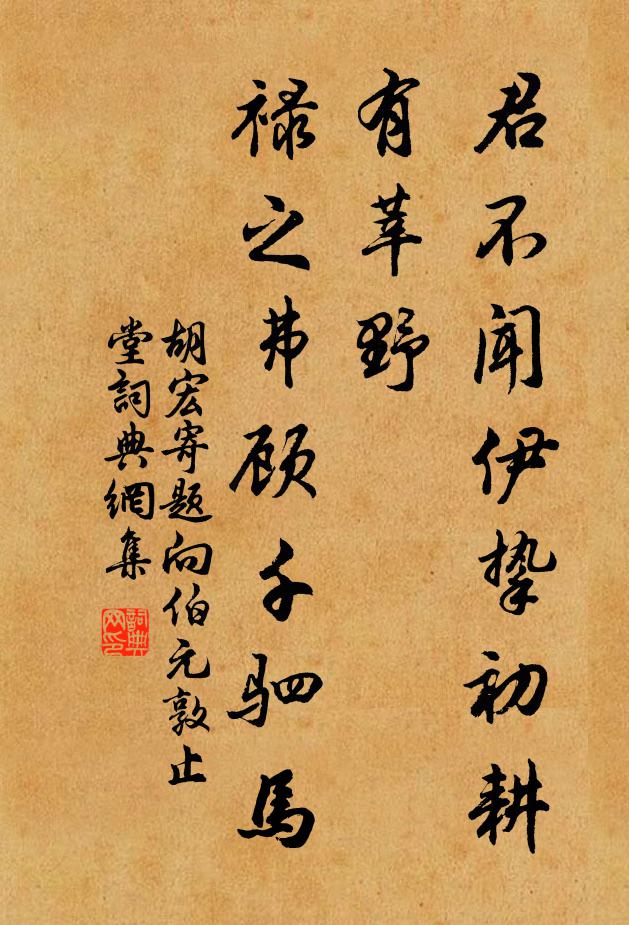 君不闻伊挚初耕
有莘野
禄之弗顾千驷馬
胡宏寄题向伯元敦止
堂詞典網集
詞典网印